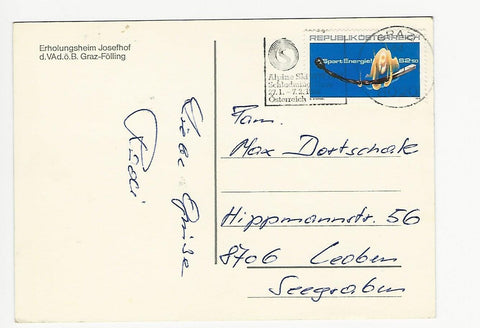 Erholungsheim Josefhof
d.VAd.ö.B. Graz-Fölling
Liebe Grüße
Rudi
REPUBLIK ÖSTERREICH
Sport Energie! S2.50
GRAZ
Alpine Ski
Schladming
27.1. - 7.2.
Österreich
Fam.
Max Dortschak
Hippmannstr. 56
8706 Leoben
Seegraben